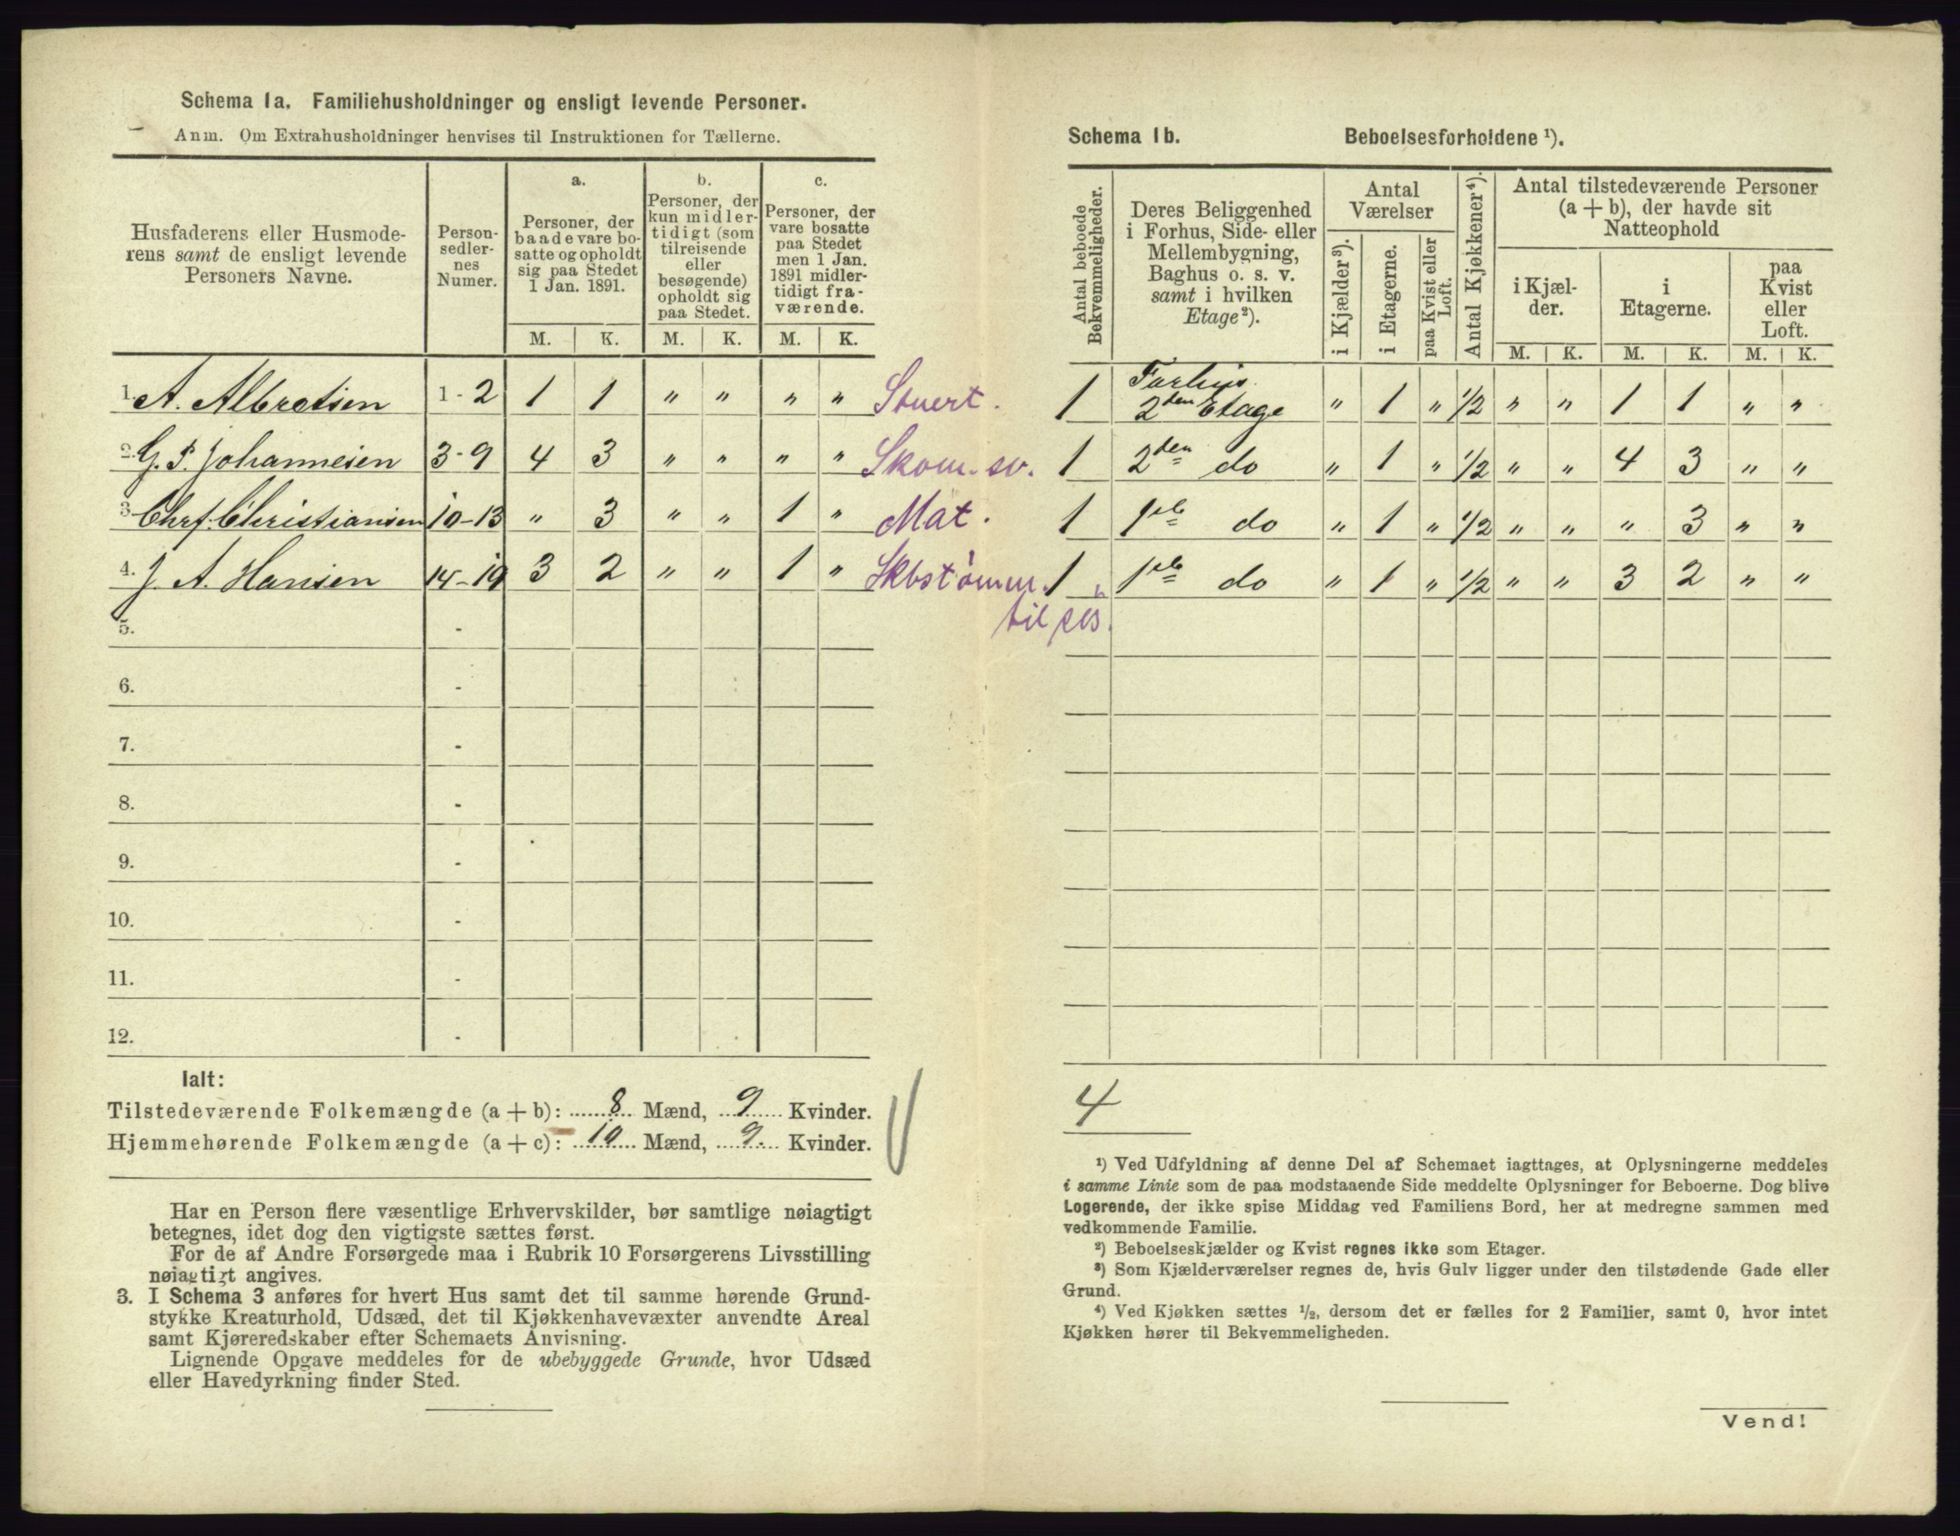 Schema 1a. Familiehusholdninger og ensligt levende Personer.
Anm. Om Extrahusholdninger henvises til Instruktionen for Tællerne.
Husfaderens eller Husmode-
rens samt de ensligt levende
Personers Navne.
Person-
sedler-
nes
Numer.
a.
Personer, der
baade vare bo-
satte og opholdt
sig paa Stedet
1 Jan. 1891.
b.
Personer, der
kun midler-
tidigt (som
tilreisende
eller
besøgende)
opholdt sig
paa Stedet.
c.
Personer, der
vare bosatte
paa Stedet
men 1 Jan.
1891 midler-
tidigt fra-
værende.
M. K. M. K. M. K.
1. A. Albretsen 1 - 2 1 1 " " " " Stuert.
2. G. P. Johannesen 3 - 9 4 3 " " " " Skom. sv.
3. Chrf. Christiansen 10 - 13 " 3 " " 1 " Mat.
4. J. A. Hansen 14 - 19 3 2 " " 1 " Skbstømm.
til ses.
5. -
6. -
7. -
8. -
9. -
10. -
11. -
12. -
Ialt:
Tilstedeværende Folkemængde (a + b): 8 Mænd, 9 Kvinder.
Hjemmehørende Folkemængde (a + c): 10 Mænd, 9. Kvinder.
Har en Person flere væsentlige Erhvervskilder, bør samtlige nøiagtigt
betegnes, idet dog den vigtigste sættes først.
For de af Andre Forsørgede maa i Rubrik 10 Forsørgerens Livsstilling
nøiagtigt angives.
3. I Schema 3 anføres for hvert Hus samt det til samme hørende Grund-
stykke Kreaturhold, Udsæd, det til Kjøkkenhavevæxter anvendte Areal
samt Kjøreredskaber efter Schemaets Anvisning.
Lignende Opgave meddeles for de ubebyggede Grunde, hvor Udsæd
eller Havedyrkning finder Sted.
Schema 1b. Beboelsesforholdene ¹).
Antal beboede
Bekvemmeligheder.
Deres Beliggenhed
i Forhus, Side- eller
Mellembygning,
Baghus o. s. v.
samt i hvilken
Etage²).
Antal
Værelser
i Kjælder³).
i Etagerne.
paa Kvist eller
Loft.
Antal Kjøkkener⁴).
Antal tilstedeværende Personer
(a + b), der havde sit
Natteophold
i Kjæl-
der.
i
Etagerne.
paa
Kvist
eller
Loft.
M. K. M. K. M. K.
1 Forhus.
2den Etage " 1 " 1/2 " " 1 1 " "
1 2den do " 1 " 1/2 " " 4 3 " "
1 1ste do " 1 " 1/2 " " " 3 " "
1 " 1ste do " 1 " 1/2 " " 3 2 " "
4
¹) Ved Udfyldning af denne Del af Schemaet iagttages, at Oplysningerne meddeles
i samme Linie som de paa modstaaende Side meddelte Oplysninger for Beboerne. Dog blive
Logerende, der ikke spise Middag ved Familiens Bord, her at medregne sammen med
vedkommende Familie.
²) Beboelseskjælder og Kvist regnes ikke som Etager.
³) Som Kjælderværelser regnes de, hvis Gulv ligger under den tilstødende Gade eller
Grund.
⁴) Ved Kjøkken sættes ¹/₂, dersom det er fælles for 2 Familier, samt 0, hvor intet
Kjøkken hører til Bekvemmeligheden.
Vend!